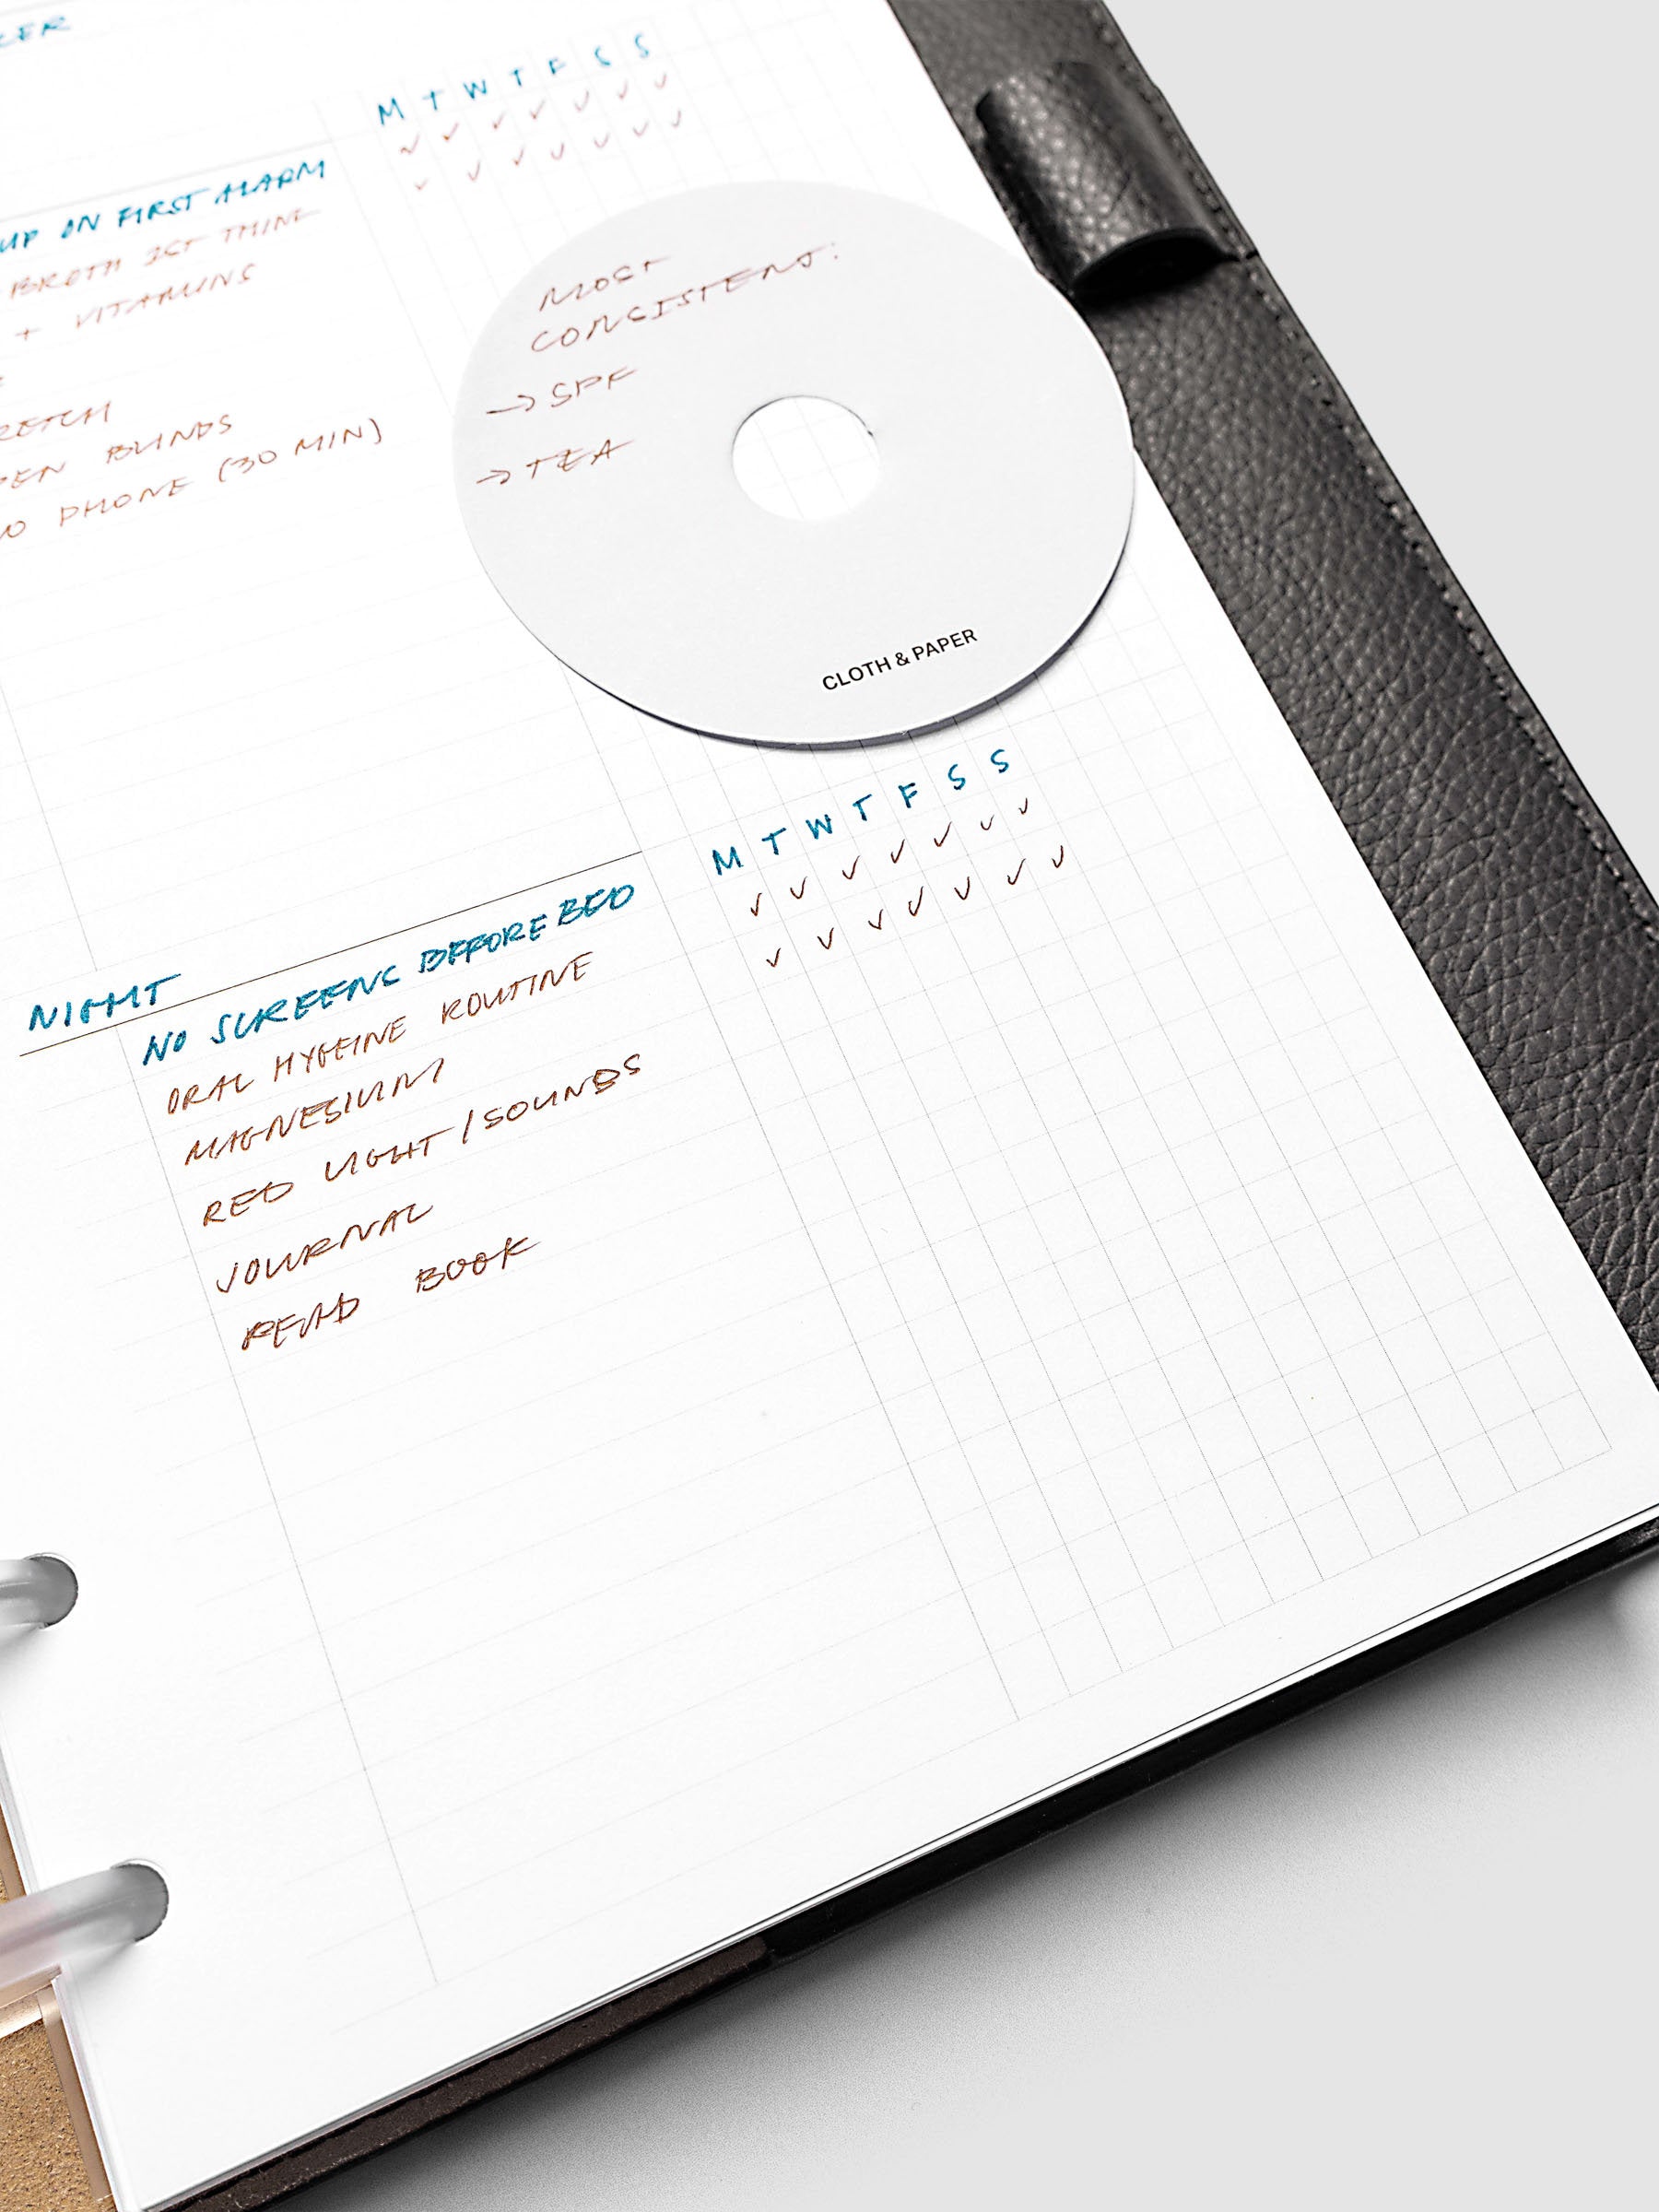 M T W T F S S
UP ON FIRST ALARM
BROTH 1ST THING
+ VITAMINS
BLINDS
PHONE (30 MIN)
MOST
CONSISTENT:
→ SPF
→ TEA
CLOTH & PAPER
M T W T F S S
NIGHT
NO SCREENS BEFORE BED
ORAL HYGEINE ROUTINE
MAGNESIUM
RED LIGHT / SOUNDS
JOURNAL
READ BOOK